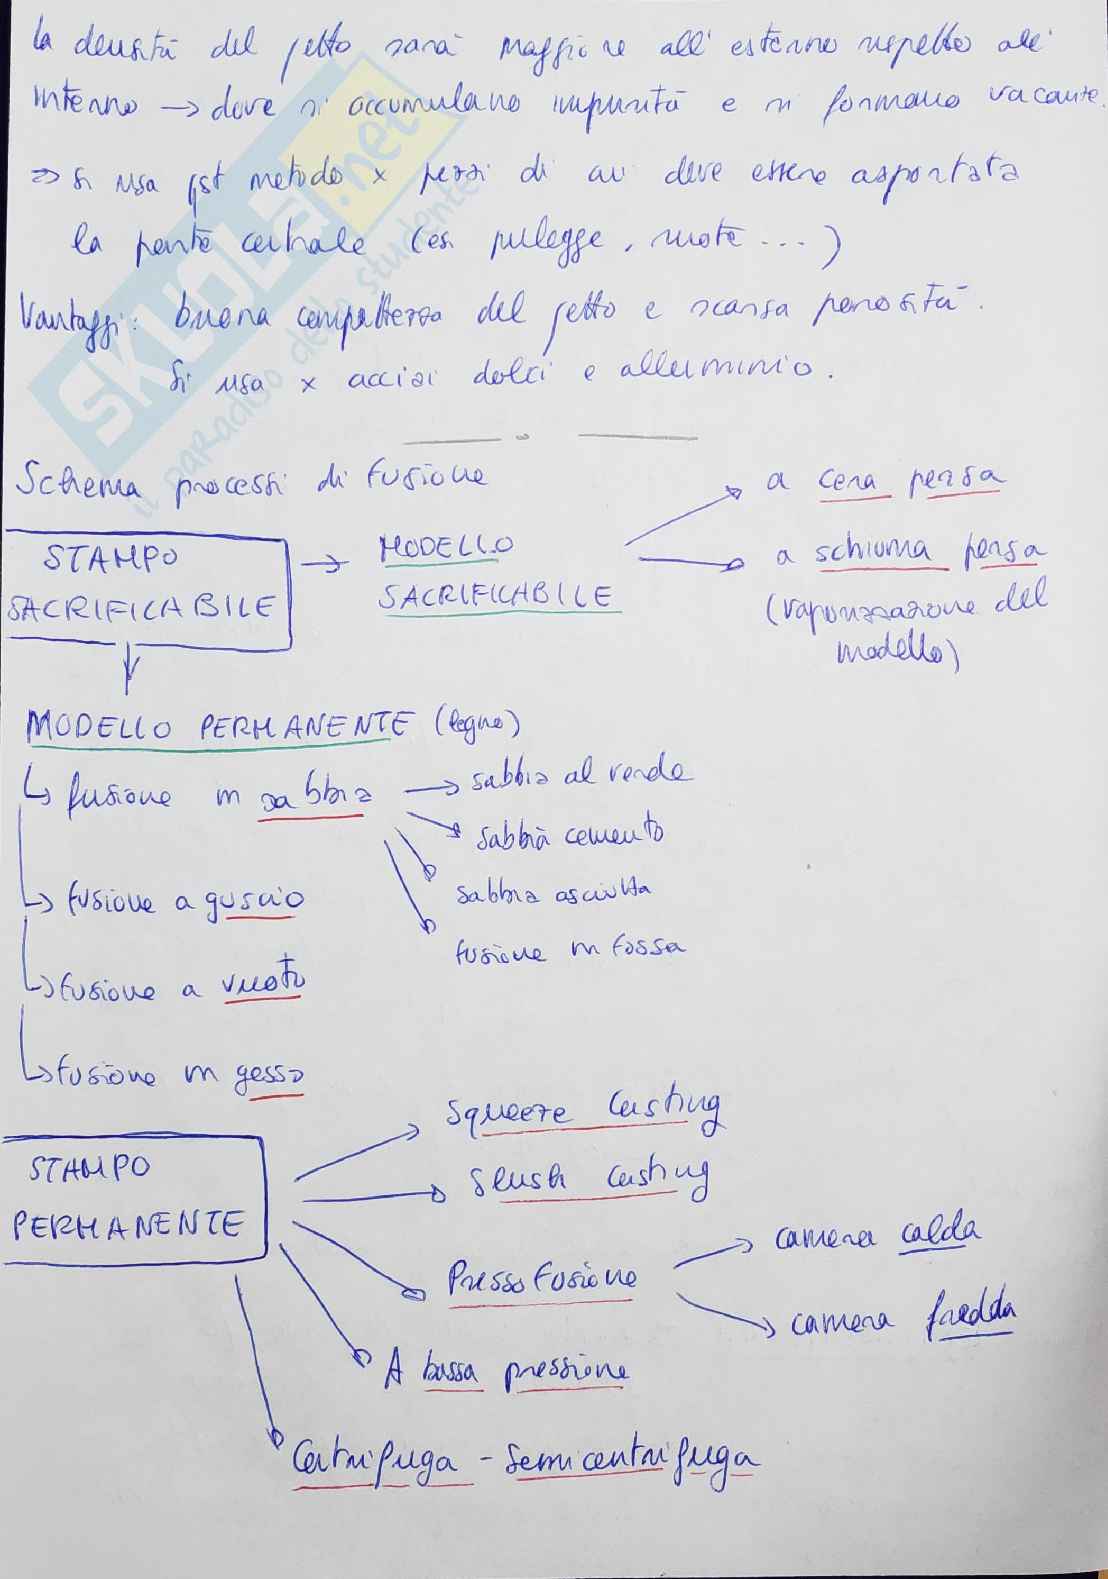 la densità del getto sarà maggiore all'esterno rispetto all'
interno → dove si accumulano impurità e si formano vacanze.
⇒ si usa qst metodo x pezzi di cui deve essere asportata
la parte centrale (es. pulegge, ruote ...)
Vantaggi: buona compattezza del getto e scarsa porosità.
Si usa x acciai dolci e alluminio.
Schema processi di fusione
STAMPO
SACRIFICABILE
→ MODELLO
SACRIFICABILE
a cera persa
a schiuma persa
(vaporizzazione del
modello)
MODELLO PERMANENTE (legno)
fusione in sabbia
→ sabbia al verde
sabbia cemento
sabbia asciutta
fusione in fossa
fusione a guscio
fusione a vuoto
fusione in gesso
STAMPO
PERMANENTE
Squeeze Casting
Slush Casting
Pressofusione
camera calda
camera fredda
A bassa pressione
Centrifuga - Semicentrifuga
SKUOLA.net
il paradiso dello studente